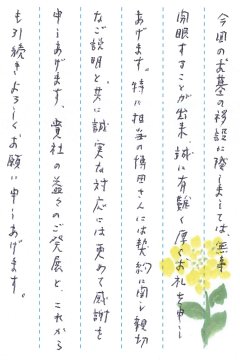 今回のお墓の移設に際しましては、無事
開眼することが出来、誠に有難く厚くお礼を申し
あげます。特に担当の博田さんには契約に関し親切
なご説明と、共に誠実な対応には更めて感謝を
申しあげます。貴社の益々のご発展と、これから
も引続きよろしくお願い申しあげます。